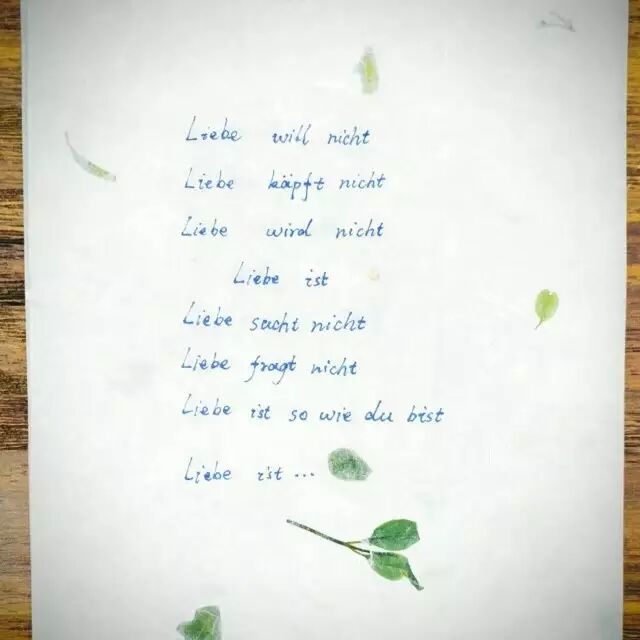 Liebe will nicht
Liebe käpft nicht
Liebe wird nicht
Liebe ist
Liebe sucht nicht
Liebe fragt nicht
Liebe ist so wie du bist
Liebe ist ...